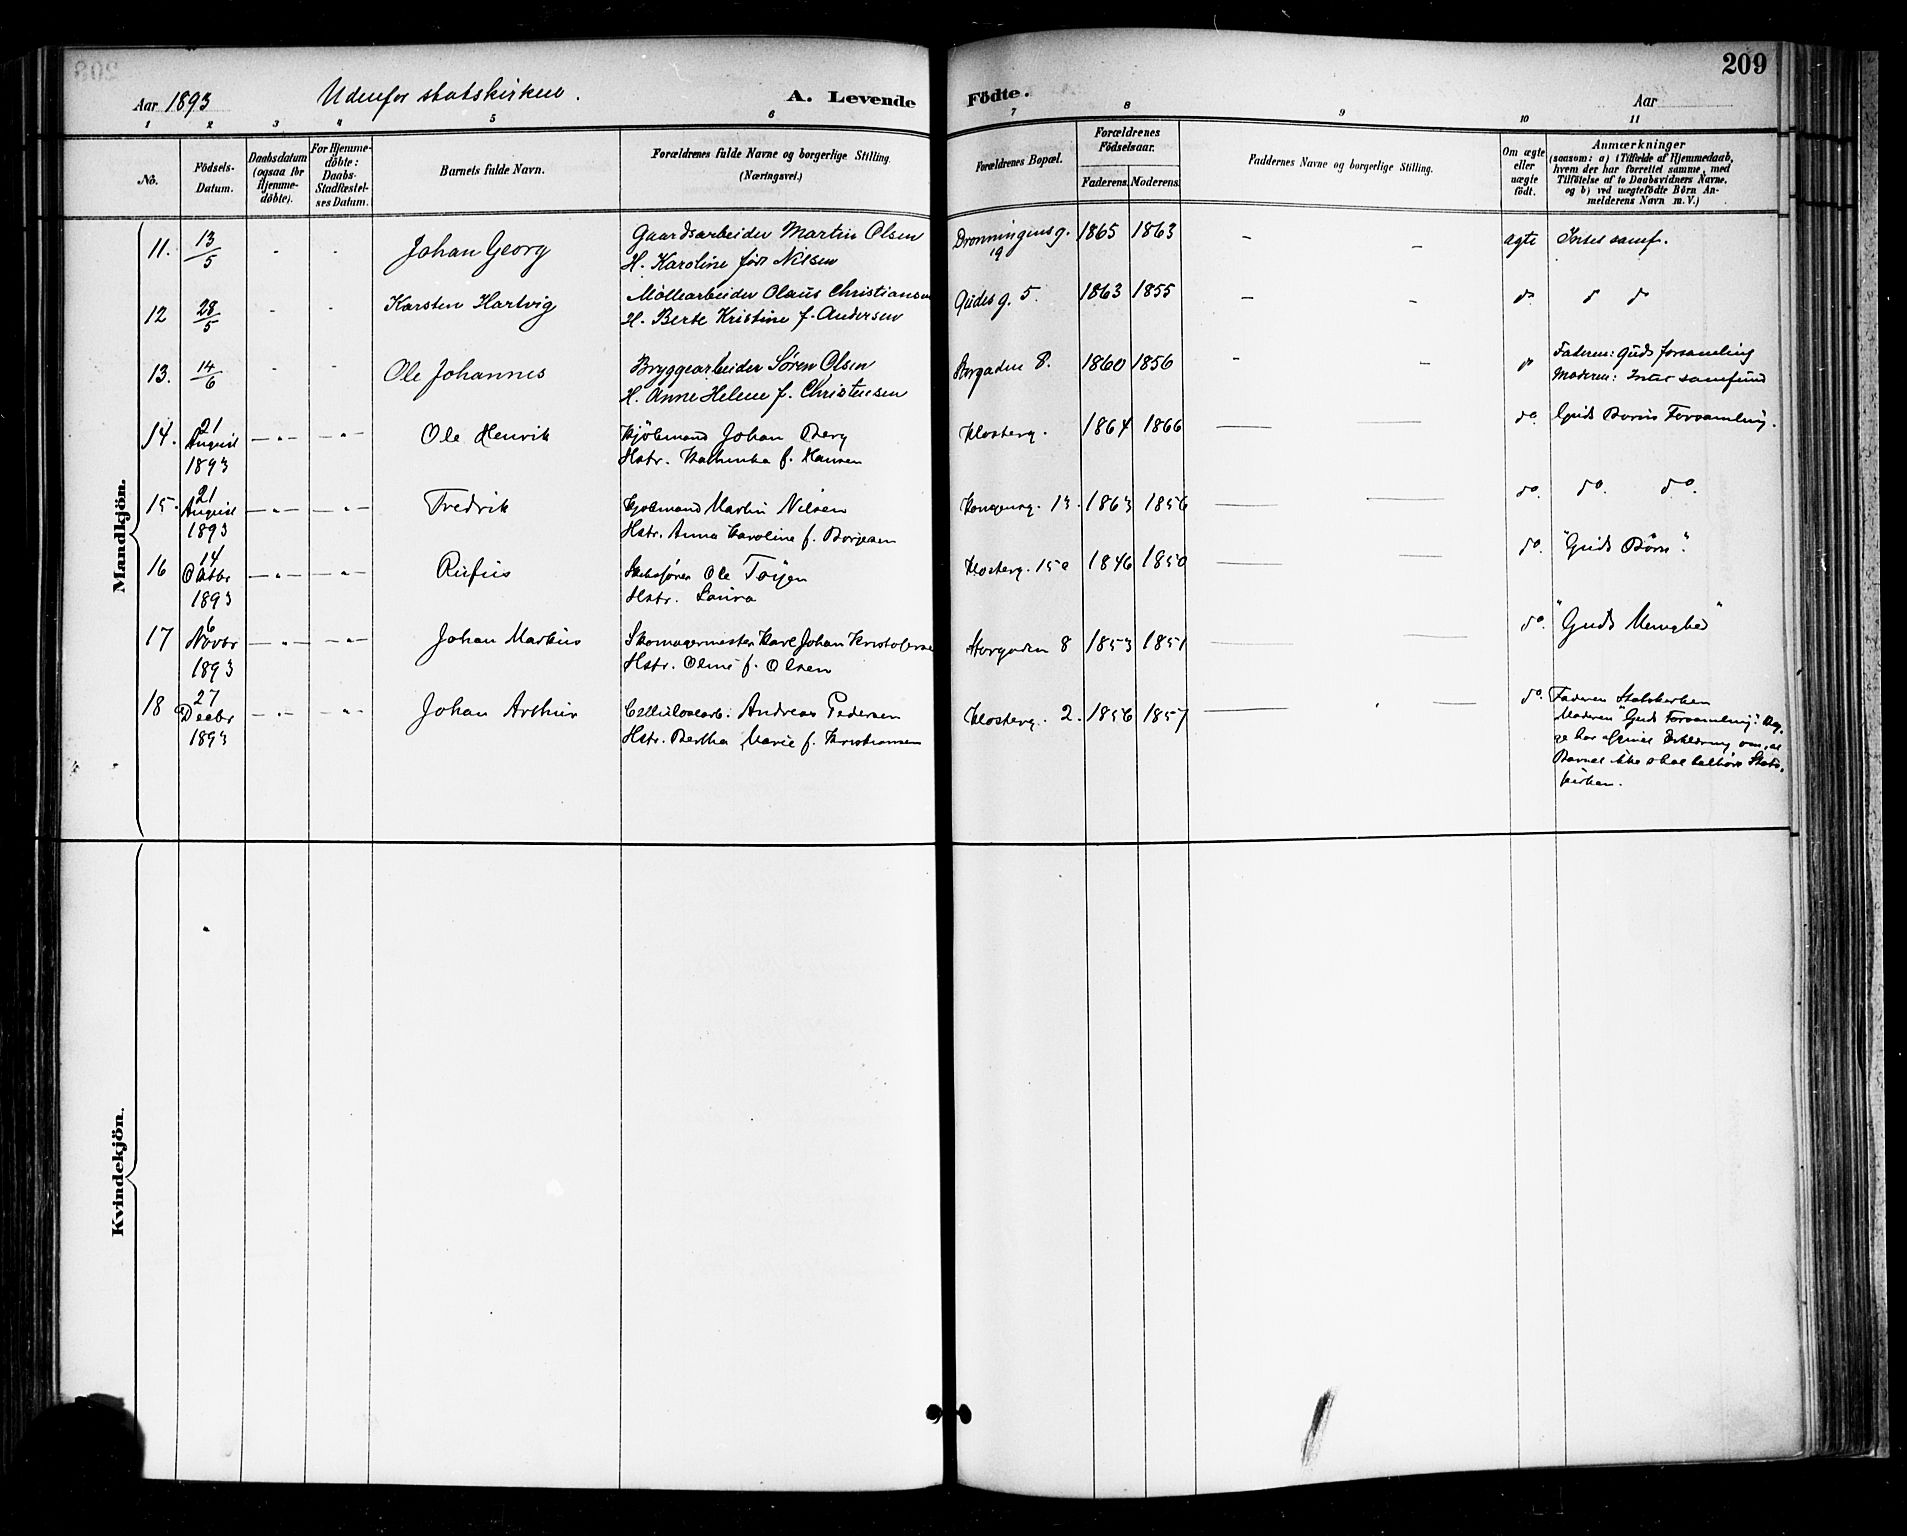 209
Aar 1893
Udenfor statskirken.
A. Levende Födte.
Aar
1 2 3 4 5 6 7 8 9 10 11
No.
Födsels-Datum.
Daabsdatum (ogsaa for Hjemme-döbte).
For Hjemme-döbte: Daabs-Stadfæstel-ses Datum.
Barnets fulde Navn.
Forældrenes fulde Navne og borgerlige Stilling.
(Næringsvei.)
Forældrenes Bopæl.
Forældrenes Födselsaar.
Faderens. Moderens.
Faddernes Navne og borgerlige Stilling.
Om ægte eller uægte födt.
Anmærkninger
(saasom: a) i Tilfælde af Hjemmedaab,
hvem der har forrettet samme, med
Tilföielse af to Daabsvidners Navne,
og b) ved uægtefödte Börn An-
melderens Navn m. V.)
Mandkjön.
11. 13/5 - - Johan Georg Gaardsarbeider Martin Olsen Dronningensg. 1865 1863 - - ægte Intet samf.
H. Karoline født Nilsen 19
12 28/5 - - Karsten Hartvig Møllearbeider Olaus Christiansen Gudesg. 5. 1863 1855 - - do do do
H. Berte Kristine f. Andersen
13. 14/6 - - Ole Johannes Bryggearbeider Søren Olsen Storgaden 8. 1860 1856 - - do Faderen: Guds forsamling
H. Anne Helene f. Christensen Moderen: Intet samfund
14. 21 August 1893 Ole Henrik Kjöbmand Johan Berg Klosterg. 1864 1866 do. Guds Börns Forsamling.
Hstr. Kathinka f. Hansen
15. 21 August 1893 Fredrik Kjöbmand Martin Nilsen Kongensg. 13. 1863 1856 do. do. do.
Hstr. Anna Karoline f. Borgesen
16 14 Oktbr 1893 Rufus Ole Klosterg. 15a 1846 1850 do. "Guds Børn".
Hstr. Laura
17 6 Novbr 1893 Johan Markus Skomagermester Karl Johan Storgaden 8 1853 1851 do. "Guds Menighed"
Hstr. f. Olsen
18 27 Decbr 1893 Johan Arthur Cellulosearb. Andreas Pedersen Klosterg. 2. 1856 1857 do. Faderen Statskirken
Hstr. Bertha Marie f. Kristiansen Moderen "Guds Forsamling". Beg-
ge har afgivet Erklæring, om, at
Barnet ikke skal tilhøre Stats-
kirken.
Kvindekjön.